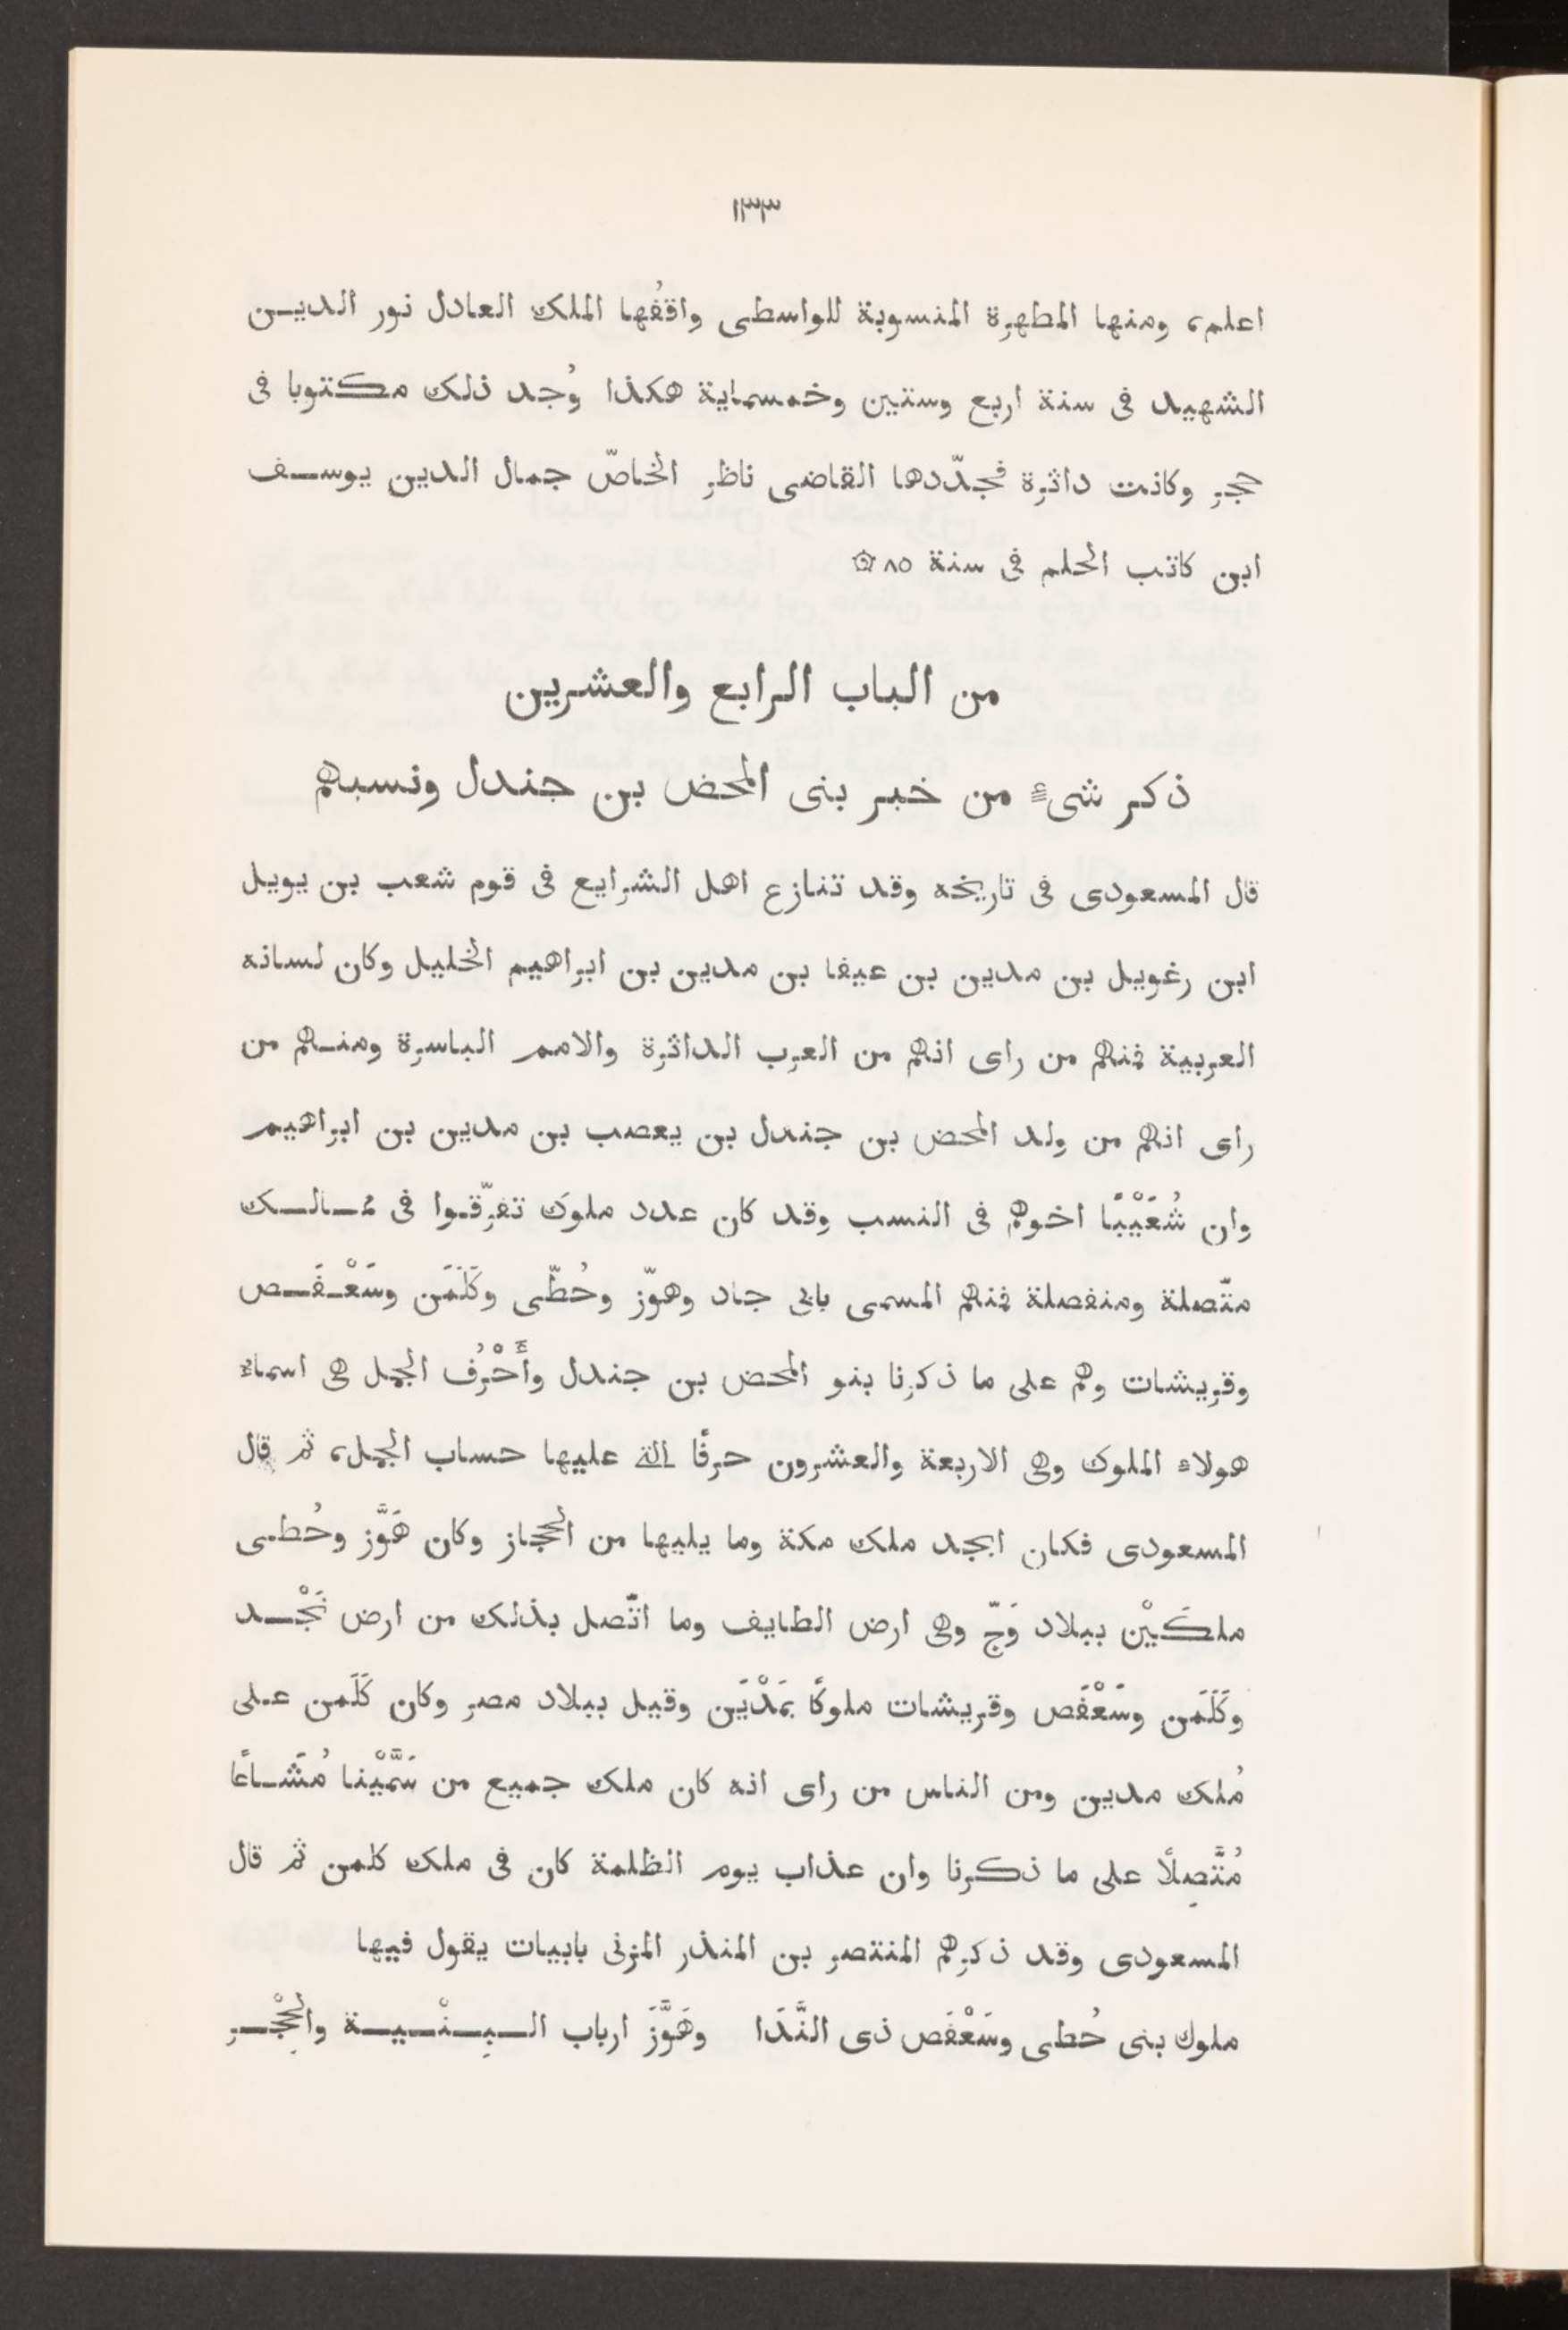 ١٣٣
اعلم، ومنها المطهرة المنسوبة للواسطى واقفُها الملك العادل نور الديـن
الشهيد فى سنة اربع وستين وخمسماية هكذا وُجد ذلك مكتوبا فى
حجر وكانت داثرة فجدّدها القاضى ناظر الخاصّ جمال الدين يوسـف
ابن كاتب الحلم فى سنة ٨٥ ۞
من الباب الرابع والعشرين
ذكر شىء من خبر بنى المحض بن جندل ونسبهم
قال المسعودى فى تاريخه وقد تنازع اهل الشرايع فى قوم شعب بن يويل
ابن رغويل بن مدين بن عيفا بن مدين بن ابراهيم الخليل وكان لسانه
العربية فمنهم من راى انهم من العرب الداثرة والامم الباسرة ومنـهم من
راى انهم من ولد المحض بن جندل بن يعصب بن مدين بن ابراهيم
وان شُعَيْبًا اخوهم فى النسب وقد كان عدد ملوك تفرّقـوا فى مـمـالـك
متّصلة ومنفصلة فمنهم المسمى بابى جاد وهوّز وحُطّى وكَلَمَن وسَعْـفَـص
وقريشات وهم على ما ذكرنا بنو المحض بن جندل وأَحْرُف الجمل هى اسماء
هولاء الملوك وهى الاربعة والعشرون حرفًا الة عليها حساب الجمل، ثم قال
المسعودى فكان ابجد ملك مكة وما يليها من الحجاز وكان هَوَّز وحُطـى
ملكَيْن ببلاد وَجّ وهى ارض الطايف وما اتّصل بذلك من ارض نَجْـد
وكَلَمَن وسَعْفَص وقريشات ملوكًا بمَدْيَن وقيل ببلاد مصر وكان كَلَمن عـلى
مُلك مدين ومن الناس من راى انه كان ملك جميع من سَمَّيْنا مُشَـاعًا
مُتَّصِلًا على ما ذكرنا وان عذاب يوم الظلمة كان فى ملك كلمن ثم قال
المسعودى وقد ذكرهم المنتصر بن المنذر المزنى بابيات يقول فيها
ملوك بنى حُطى وسَعْفَص ذى النَّدَا وهَوَّزَ ارباب الـبِـنْـيـة والحِجْـر